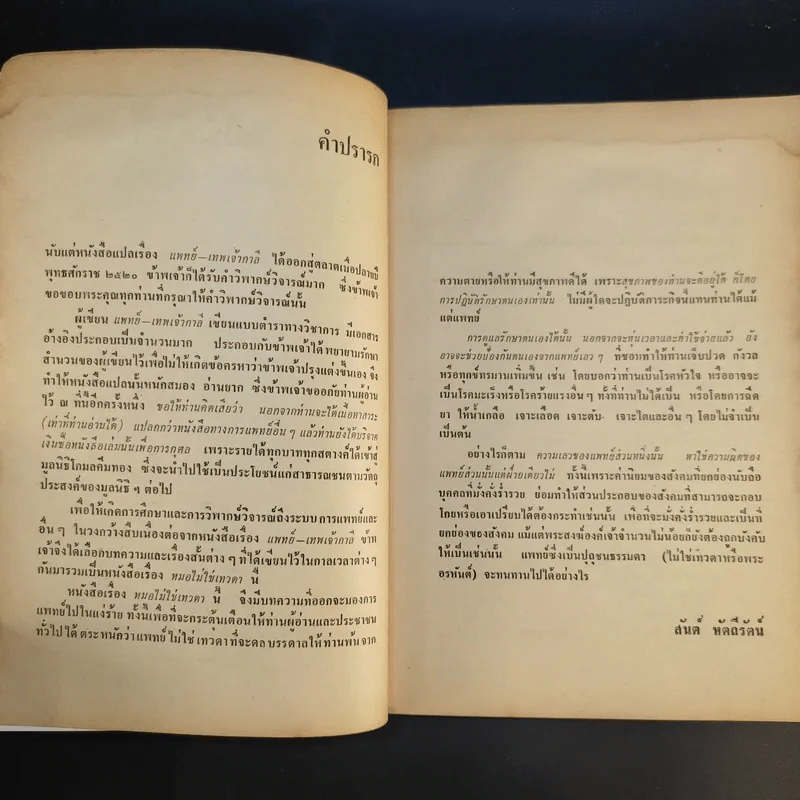 คำปรารภ
นับแต่หนังสือแปลเรื่อง แพทย์–เทพเจ้ากาลี ได้ออกสู่ตลาดเมื่อปลายปี
พุทธศักราช ๒๕๒๐ ข้าพเจ้าก็ได้รับคำวิพากษ์วิจารณ์มาก ซึ่งข้าพเจ้า
ขอขอบพระคุณทุกท่านที่กรุณาให้คำวิพากษ์วิจารณ์นั้น
ผู้เขียน แพทย์–เทพเจ้ากาลี เขียนแบบตำราทางวิชาการ มีเอกสาร
อ้างอิงประกอบเป็นจำนวนมาก ประกอบกับข้าพเจ้าได้พยายามรักษา
สำนวนของผู้เขียนไว้เพื่อไม่ให้เกิดข้อครหาว่าข้าพเจ้าปรุงแต่งขึ้นเอง จึง
ทำให้หนังสือแปลนั้นหนักสมอง อ่านยาก ซึ่งข้าพเจ้าขออภัยท่านผู้อ่าน
ไว้ ณ ที่นี้อีกครั้งหนึ่ง ขอให้ท่านคิดเสียว่า นอกจากท่านจะได้เนื้อหาสาระ
(เท่าที่ท่านอ่านได้) แปลกกว่าหนังสือทางการแพทย์อื่นๆ แล้วท่านยังได้บริจาค
เงินซื้อหนังสือเล่มนั้นเพื่อการกุศล เพราะรายได้ทุกบาททุกสตางค์ได้เข้าสู่
มูลนิธิโกมลคีมทอง ซึ่งจะนำไปใช้เป็นประโยชน์แก่สาธารณชนตามวัตถุ
ประสงค์ของมูลนิธิ ฯ ต่อไป
เพื่อให้เกิดการศึกษาและการวิพากษ์วิจารณ์ถึงระบบการแพทย์และ
อื่น ๆ ในวงกว้างสืบเนื่องต่อจากหนังสือเรื่อง แพทย์–เทพเจ้ากาลี ข้าพ
เจ้าจึงได้เลือกบทความและเรื่องสั้นต่าง ๆ ที่ได้เขียนไว้ในกาลเวลาต่างๆ
กันมารวมเป็นหนังสือเรื่อง หมอไม่ใช่เทวดา นี้
หนังสือเรื่อง หมอไม่ใช่เทวดา นี้ จึงมีบทความที่ออกจะมองการ
แพทย์ไปในแง่ร้าย ทั้งนี้เพื่อที่จะกระตุ้นเตือนให้ท่านผู้อ่านและประชาชน
ทั่วไปได้ตระหนักว่าแพทย์ไม่ใช่เทวดาที่จะดลบรรดาลให้ท่านพ้นจาก
ความตายหรือให้ท่านมีสุขภาพดีได้ เพราะสุขภาพของท่านจะดีอยู่ได้ ก็โดย
การปฏิบัติรักษาตนเองเท่านั้น ไม่มีผู้ใดจะปฏิบัติภาระกิจนี้แทนท่านได้แม้
แต่แพทย์
การดูแลรักษาตนเองได้นั้น นอกจากจะทุ่นเวลาและค่าใช้จ่ายแล้ว ยัง
อาจจะช่วยป้องกันตนเองจากแพทย์เลว ๆ ที่ชอบทำให้ท่านเจ็บปวด กังวล
หรือทุกข์ทรมานเพิ่มขึ้น เช่น โดยบอกว่าท่านเป็นโรคหัวใจ หรืออาจจะ
เป็นโรคมะเร็งหรือโรคร้ายแรงอื่น ๆ ทั้งที่ท่านไม่ได้เป็น หรือโดยการฉีด
ยา ให้น้ำเกลือ เจาะเลือด เจาะตับ เจาะไตและอื่น ๆ โดยไม่จำเป็น
เป็นต้น
อย่างไรก็ตาม ความเลวของแพทย์ส่วนหนึ่งนั้น หาใช่ความผิดของ
แพทย์ส่วนนั้นแต่ฝ่ายเดียวไม่ ทั้งนี้เพราะค่านิยมของสังคมที่ยกย่องนับถือ
บุคคลที่มั่งคั่งร่ำรวย ย่อมทำให้ส่วนประกอบของสังคมที่สามารถจะกอบ
โกยหรือเอาเปรียบได้ต้องกระทำเช่นนั้น เพื่อที่จะมั่งคั่งร่ำรวยและเป็นที่
ยกย่องของสังคม แม้แต่พระสงฆ์องค์เจ้าจำนวนไม่น้อยก็ยังต้องถูกบังคับ
ให้เป็นเช่นนั้น แพทย์ซึ่งเป็นปุถุชนธรรมดา (ไม่ใช่เทวดาหรือพระ
อรหันต์) จะทนทานไปได้อย่างไร
สันต์ หัตถีรัตน์